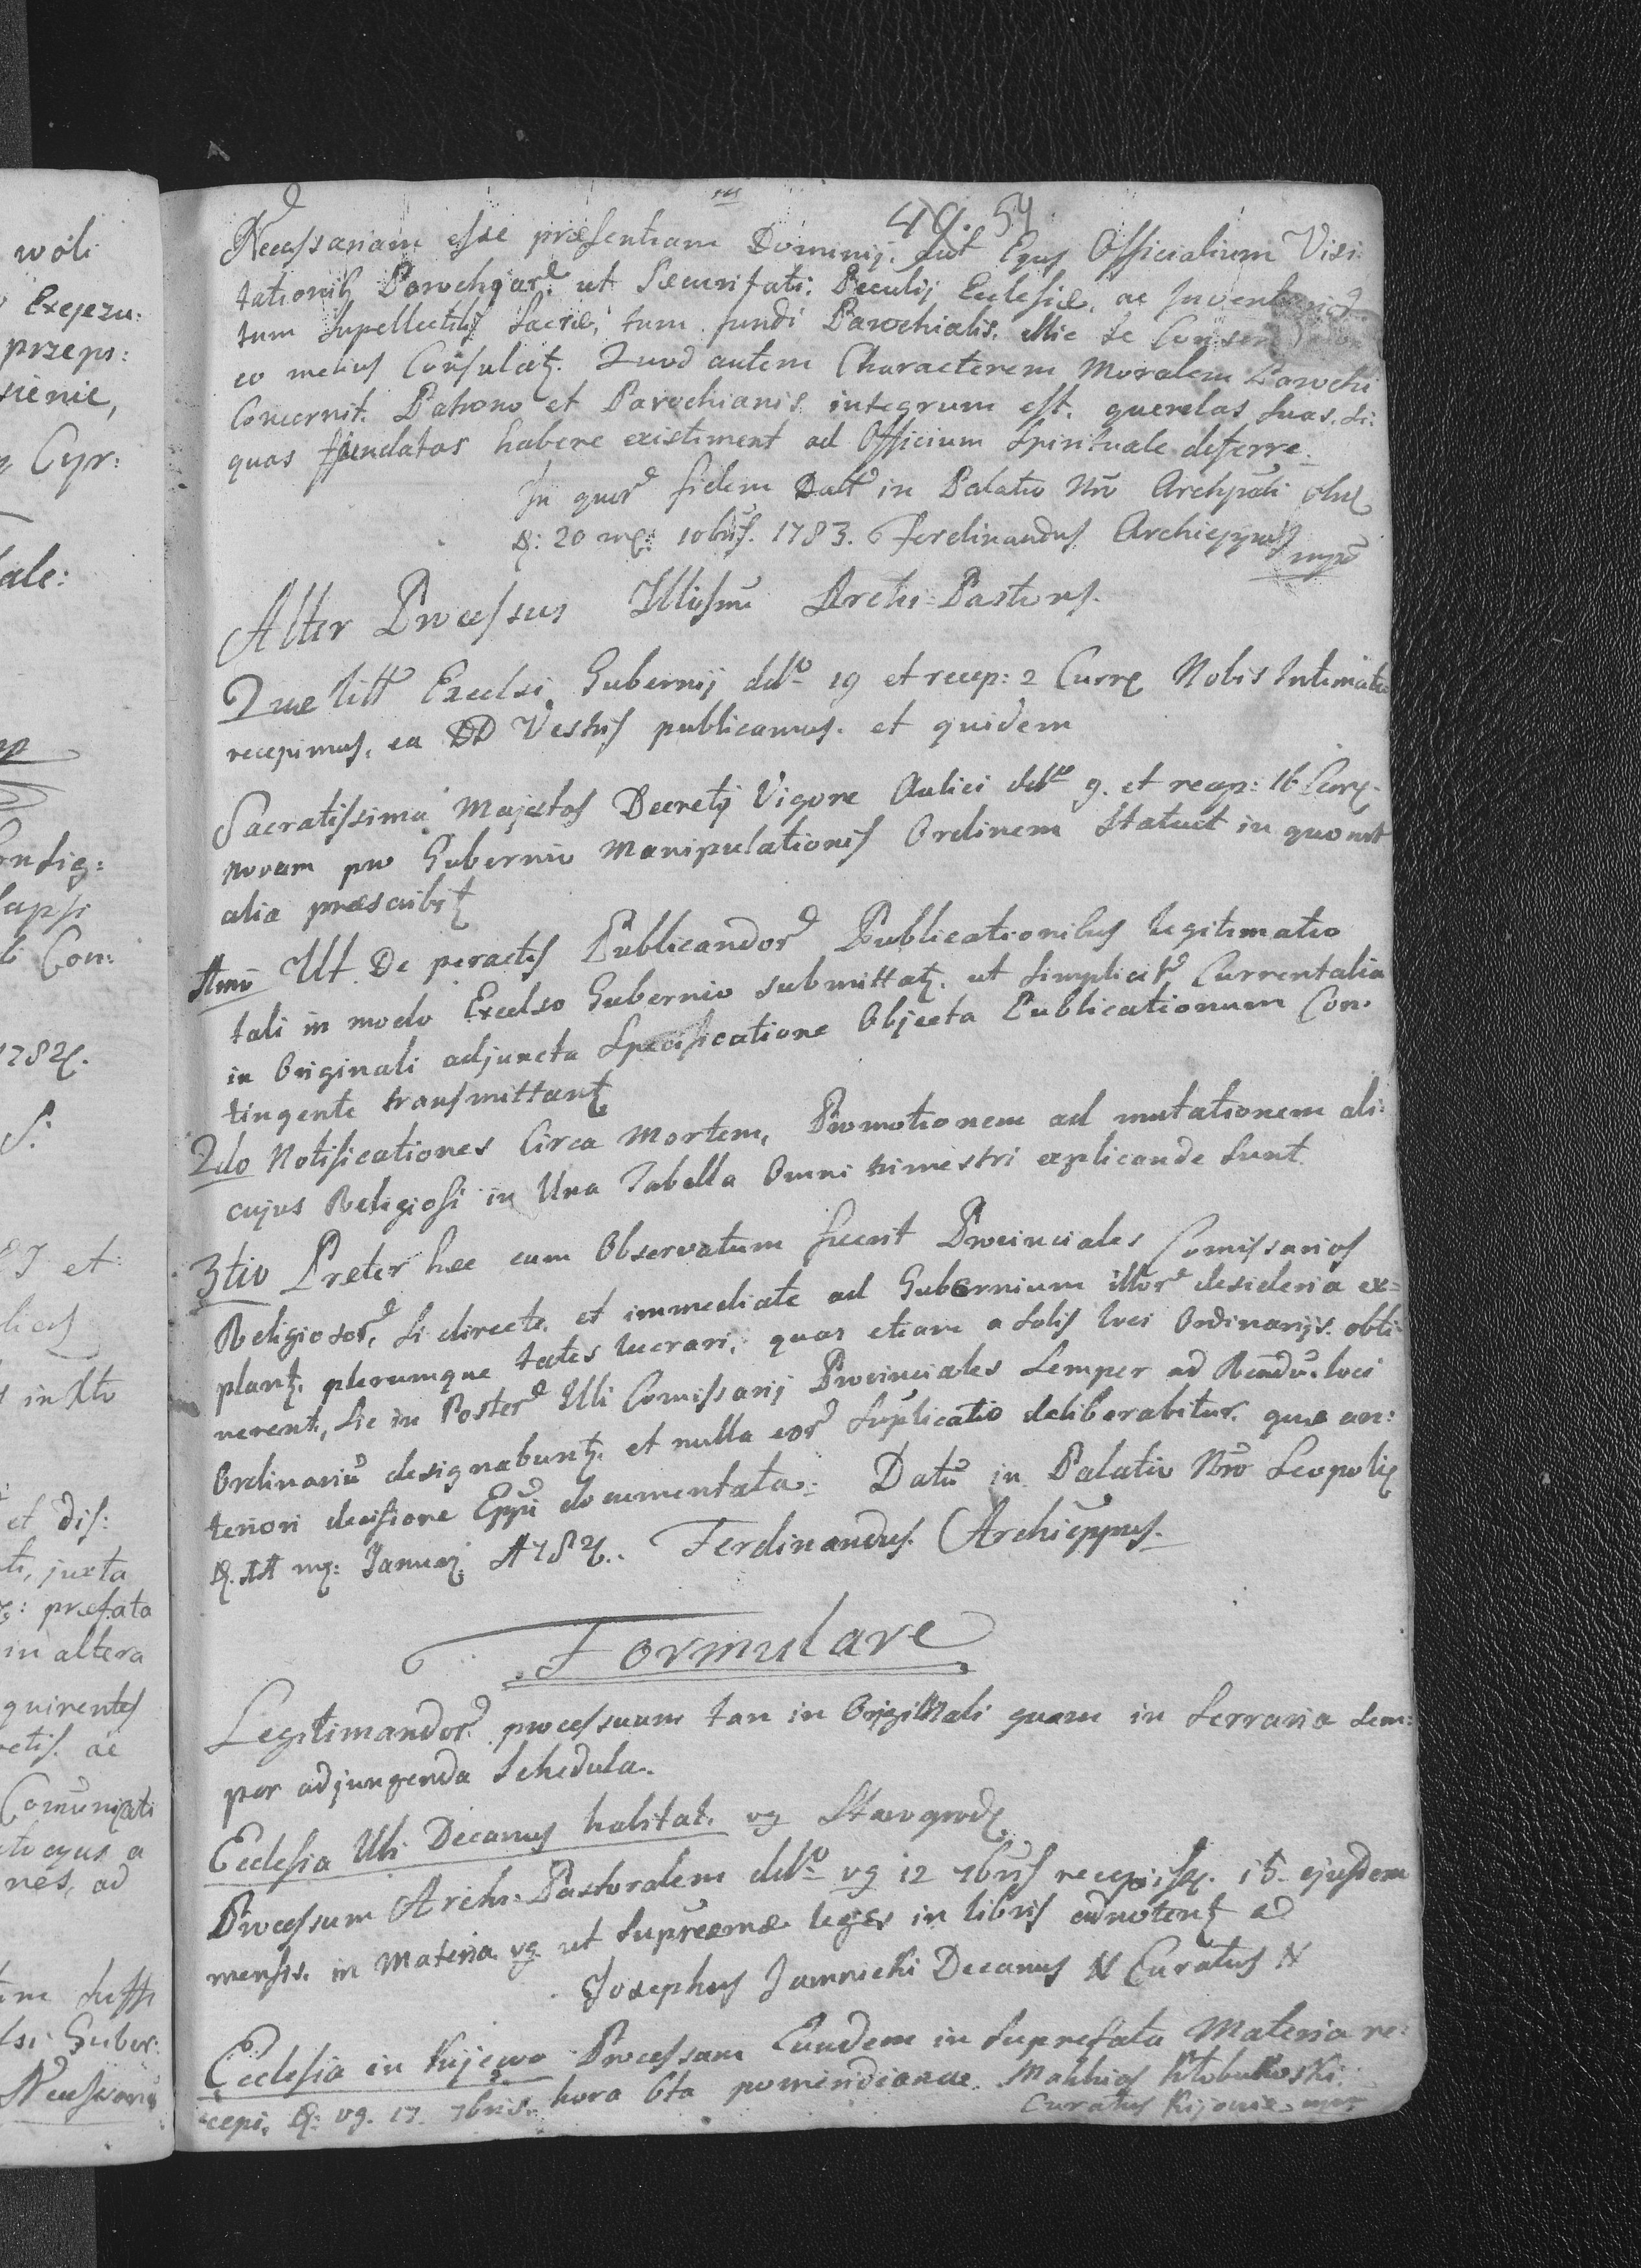 49. 54
Necessariam esse præsentiam Dominij. aut Ejus Officialium Visi:
tationib Parochiar. ut Securitati. Peculij Eclesiæ, ac
tum Supellectilis Sacræ, tum fundi Parochialis. illic se
eo melius Consulat. Quod autem Characterem Moralem Parochi
Concernit. Patrono et Parochianis integrum est. querelas suas, si:
quas fundatas habere existiment ad Officium Spirituale deferre.
In quor fidem Datt in Palatio Nro Archipāli
D: 20 m: 10bris. 1783. Ferdinandus Archieppus mpō
Alter Processus Illlissmi Archi-Pastoris.
Quæ litt Excelsi Gubernij ddto 19 et recep: 2 Curr Nobis Intimata
recepimus, ea DD Vestris publicamus. et quidem
Sacratissima Majestas Decretij Vigore Aulici ddto 9. et recep: 16 Curr.
novam pro Gubernio Manipulationis Ordinem Statuit in quo int
alia præscribit
1mo Ut De peractis Publicandor Publicationibus legitimatio
tali in modo Excelso Gubernio submittat. ut simplicitr Currentalia
in Originali adjuncta Specificatione Objecta Publicationum Con-
tingente transmittant
2do Notificationes Circa Mortem, Promotionem ad mutationem ali:
cujus Religiosi in Una Tabella Omni trimestri explicande sunt
3tio Preter hec cum Observatum fuerit Provinciales Comissarios
Religiosor, si directe et immediate ad Gubernium illor desideria ex=
plant. plerumque tales lucrari, quas etiam a solis loci Ordinarijs. obti-
nerent, sic in Poster Illi Comissarij Provinciales Semper ad Rendū. loci
Ordinariū designabunt. et nulla eor Suplicatio deliberabitur. quæ an:
teriori decisione Eppi documentata. Datū in Palatio Nro Leopoli
D. 11 m: Januar. 1784. Ferdinandus. Archieppus.
Formulare
Legitimandor. processuum tan in Originali quam in Serraria sem:
per adjungenda Schedula.
Ecclesia Ubi Decanus habitat. vg Starogrod
Processum Archi-Pastoralem ddto vg 12 7bris recepiss. 15 ejusdem
mensis. in Materia vg ut Supreemæ leges in libris adnotent ad
Josephus Jamnicki Decanus N Curatus N
Ecclesia in Kijewo Processum Eundem in suprefata Materia re:
cepi. D: vg. 17. 7bris. hora 6ta pomeridianæ. Mathias Kłobukoski.
Curatus Kijovie mpr